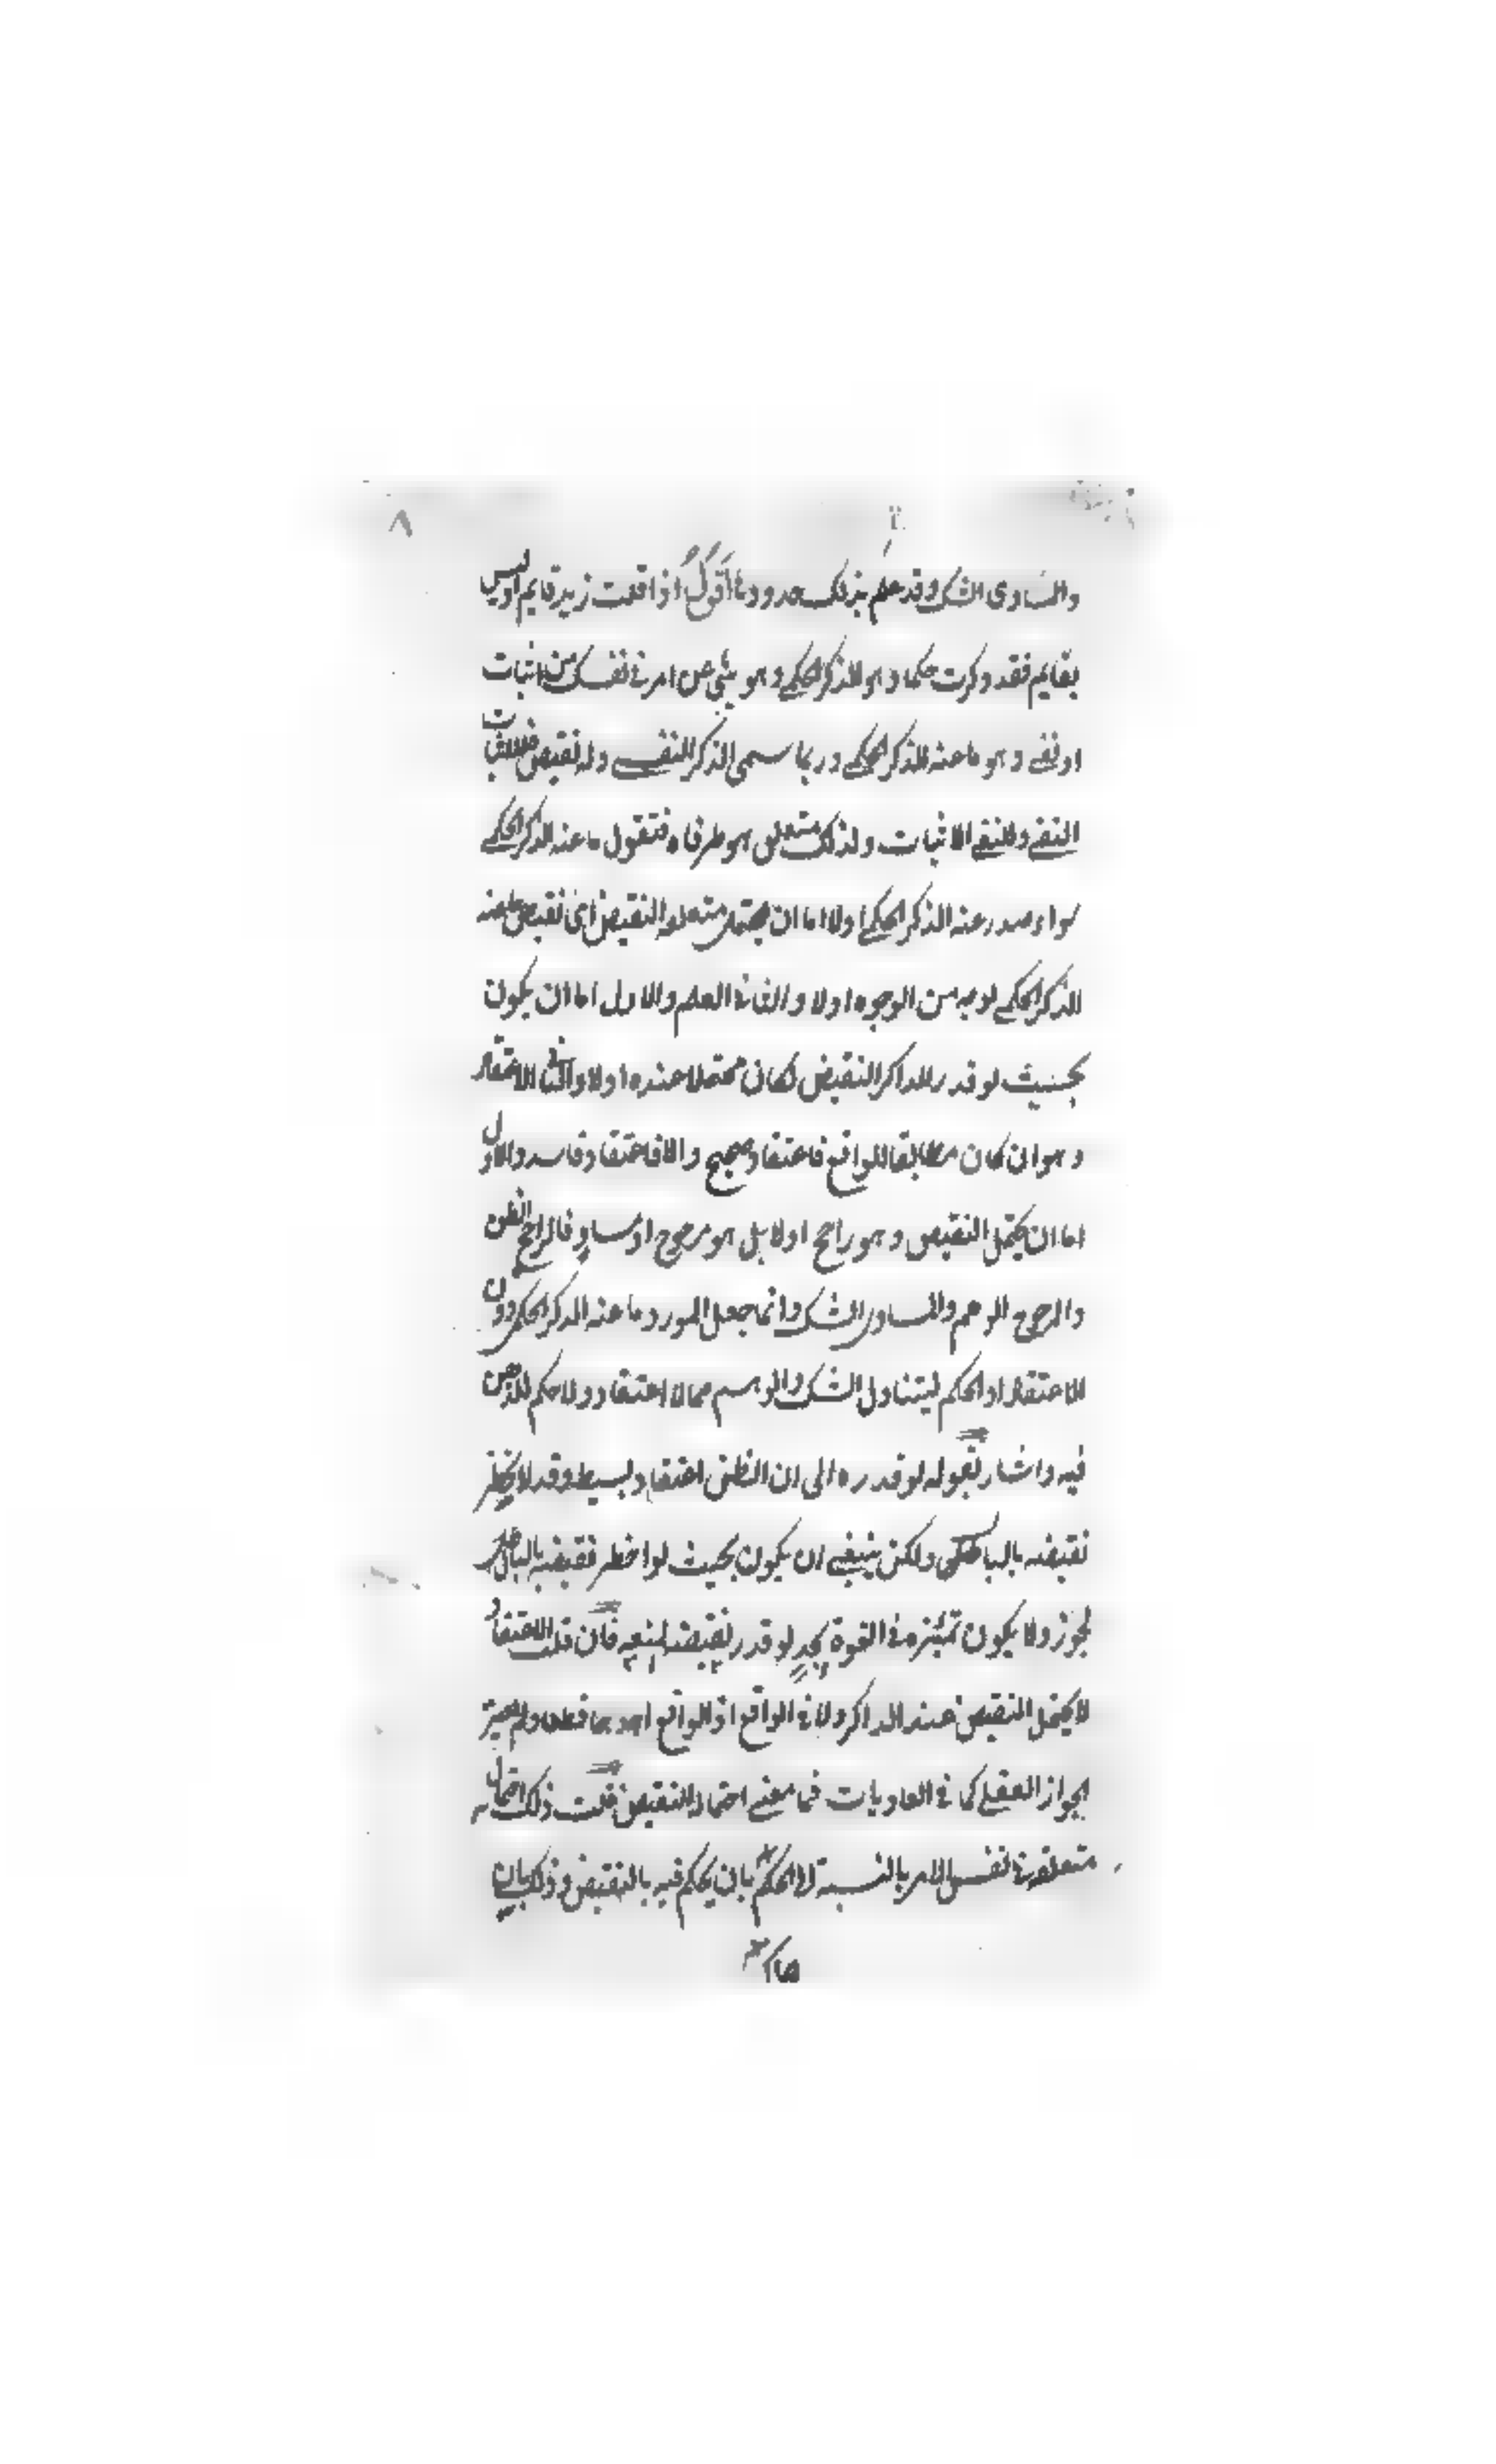 ٨
والمساوى الشك وقد علم بذلك حدودها أقول اذا قلت زيد قايم او ليس
بقايم فقد ذكرت حكما وهو الذكر الحكمي وهو ينبئ عن امر في نفسك من اثبات
او نفي وهو ما عنه الذكر الحكمي وربما سمى الذكر النفسي وله نقيض فللاثبات
النفي وللنفي الاثبات ولذلك متعلق هو طرفاه فتقول ما عنه الذكر الحكمي
سواء صدر عنه الذكر الحكمي اولا اما ان يحتمل متعلقه النقيض اى نقيض ما عنه
الذكر الحكمي بوجه من الوجوه اولا والثاني العلم والاول اما ان يكون
بحيث لو قدر الذاكر النقيض لكان محتملا عنده اولا والثاني الاعتقاد
وهو ان كان مطابقا للواقع فاعتقاد صحيح والا فاعتقاد فاسد والاول
اما ان يحتمل النقيض وهو راجح اولا بل هو مرجوح او مساو فالراجح الظن
والمرجوح الوهم والمساوى الشك وانما جعل المورد ما عنه الذكر الحكمي دون
الاعتقاد او الحكم ليتناول الشك والوهم مما لا اعتقاد ولا حكم للذهن
فيه واشار بقوله لو قدره الى ان الظن اعتقاد بسيط وقد لا يخطر
نقيضه بالبال ولكن ينبغي ان يكون بحيث لو اخطر نقيضه بالبال
لجوز ولا يكون تميزه في القوة بحد لو قدر نقيضه لمنعه فان قلت الاعتقاد
لا يحتمل النقيض عند الذاكر ولا في الواقع اذ الواقع احدهما قطعا ولم يعتبر
الجواز العقلي كما في العاديات فما معنى احتمال النقيض قلت ذلك احتمال
متعلقه في نفس الامر بالنسبة الى الحكم بان يحكم فيه بالنقيض وذلك بان